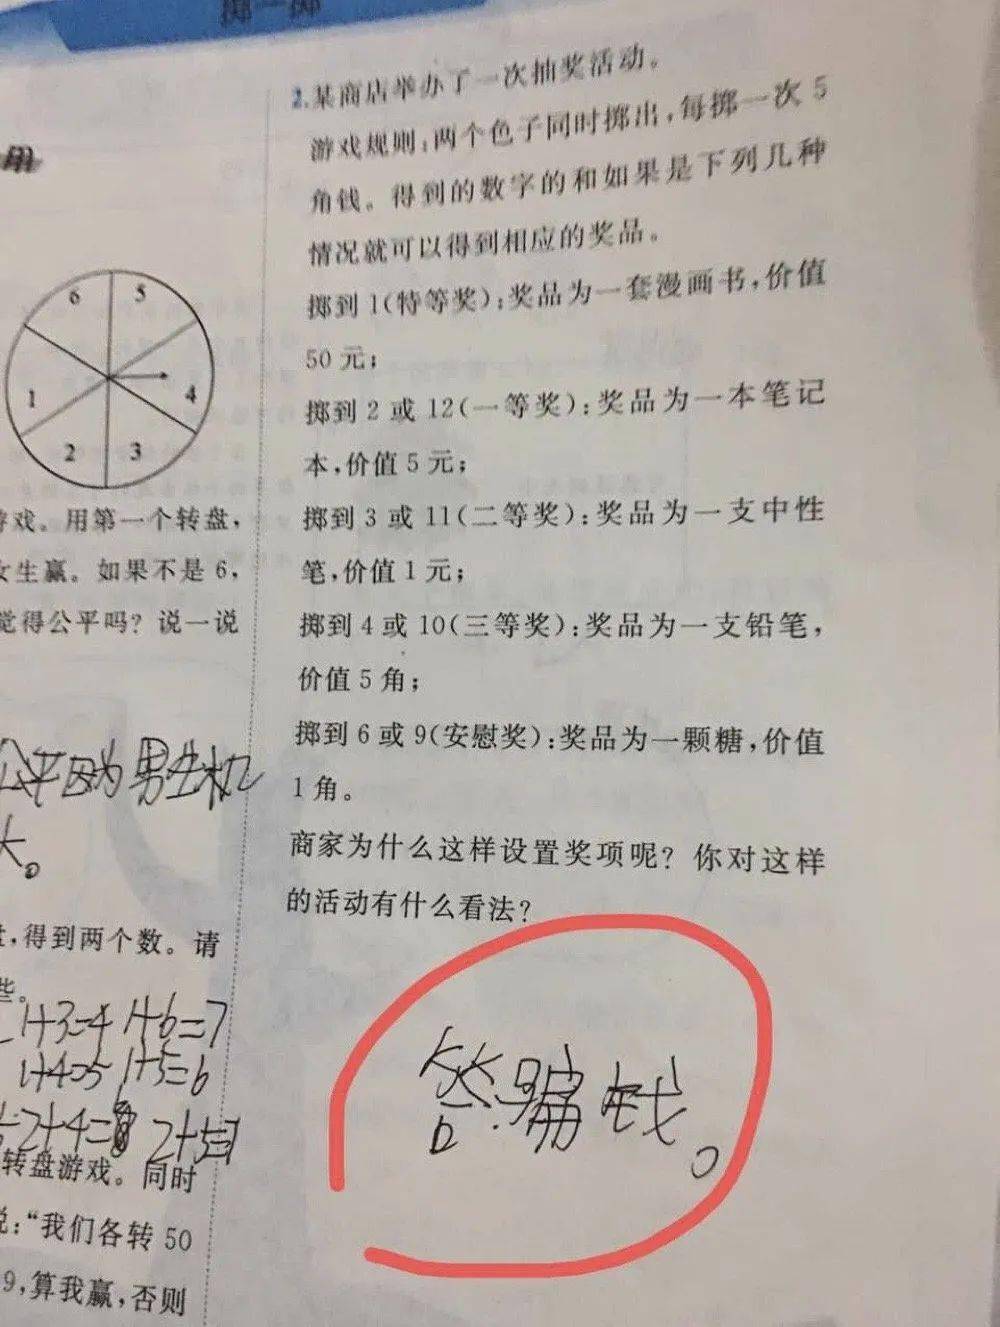 掷一掷
用
6 5
1 4
2 3
游戏。用第一个转盘，
女生赢。如果不是 6，
觉得公平吗？说一说
公平因为男生机
大。
，得到两个数。请
些。
1+3=4 1+6=7
1+4=5 1+5=6
2+4=6 2+5=7
转盘游戏。同时
说：“我们各转 50
9，算我赢，否则
2.某商店举办了一次抽奖活动。
游戏规则：两个色子同时掷出，每掷一次 5
角钱。得到的数字的和如果是下列几种
情况就可以得到相应的奖品。
掷到 1(特等奖)：奖品为一套漫画书，价值
50 元；
掷到 2 或 12(一等奖)：奖品为一本笔记
本，价值 5 元；
掷到 3 或 11(二等奖)：奖品为一支中性
笔，价值 1 元；
掷到 4 或 10(三等奖)：奖品为一支铅笔，
价值 5 角；
掷到 6 或 9(安慰奖)：奖品为一颗糖，价值
1 角。
商家为什么这样设置奖项呢？你对这样
的活动有什么看法？
答：骗钱。